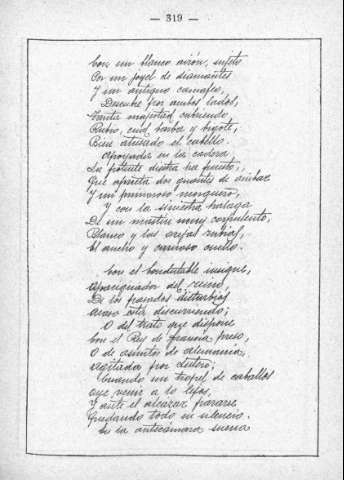 — 319 —
Con un blanco airón, sujeto
Por un joyel de diamantes
Y un antiguo camafeo,
Descubre por ambos lados,
Tanta majestad cubriendo
Rubio, cual barba y bigote,
Bien atusado el cabello.
Apoyada en la cadera
La potente diestra ha puesto,
Que aprieta dos guantes de ámbar
Y un primoroso mosquero;
Y con la siniestra halaga
De un mastín muy corpulento,
Blanco y las orejas rubias,
El ancho y carnoso cuello.
Con el Condestable insigne,
Apaciguador del reino,
De los pasados disturbios
Acaso está discurriendo;
O del trato que dispone
Con el Rey de Francia, preso,
O de asuntos de Alemania,
Agitada por Lutero;
Cuando un tropel de caballos
Oye venir a lo lejos,
Y ante el alcázar pararse,
Quedando todo en silencio.
En la antecámara suena